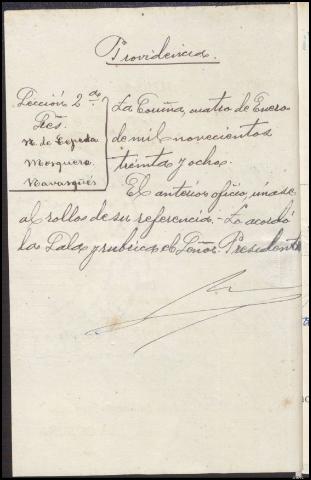 Providencia.
Sección 2ª
Sres.
N. de Cepeda
Mosquera
Navasqués
La Coruña, cuatro de Enero
de mil novecientos
treinta y ocho.
El anterior oficio, únase
al rollo de su referencia.- Lo acordó
la Sala y rubrica el Señor Presidente